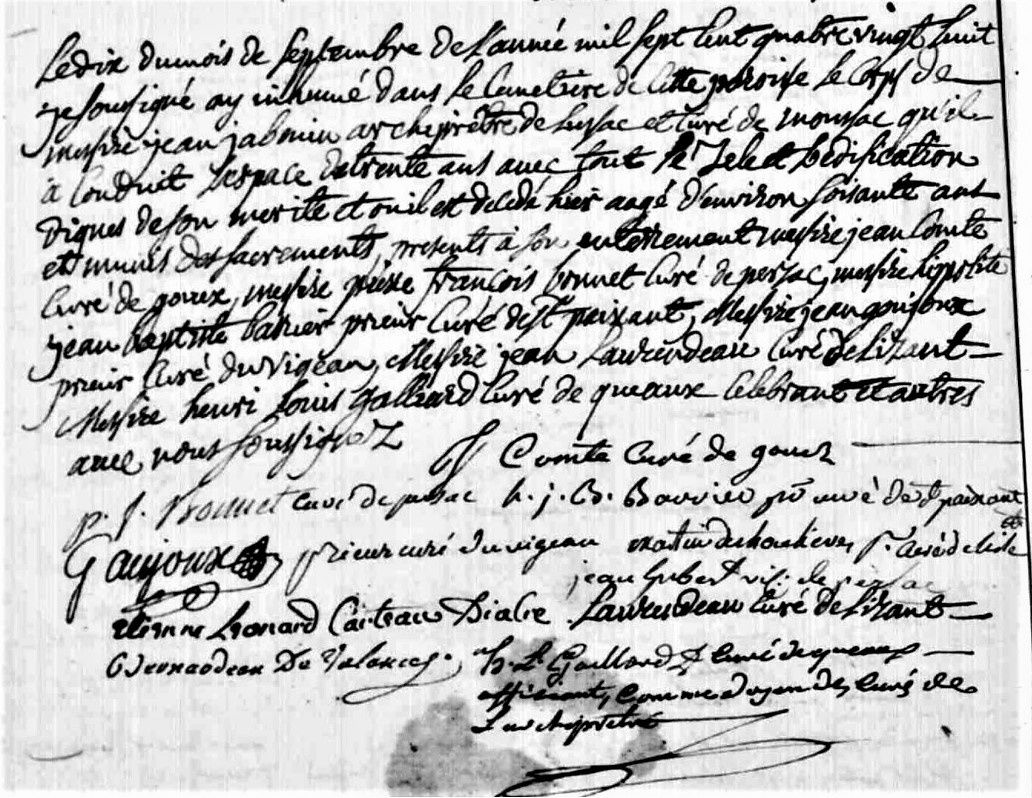 Le dix du mois de septembre de l'année mil sept cent quatre vingt huit
je soussigné ay inhumé dans le cemetière de cette paroisse le corps de
messire jean jabouin archiprêtre de lussac et curé de moussac qu'il
à conduit l'espace de trente ans avec tout le zele et l'edification
dignes de son merite et ou il est décédé hier aagé d'environ soisante ans
et munis des sacrements, presents à son enterrement messire jean Comte
curé de gouex, messire pierre françois bonnet curé de persac, messire hippolite
jean baptiste barrier prieur curé de st paixant, Messire jean goujoux
prieur curé du vigean, Messire jean Laurendeau curé de Lizant
Messire henri Louis galliard curé de queaux celebrant et autres
avec nous soussignez
Comte curé de gouex
p. f. Bonnet curé de persac h. j. B. Barrier pr curé de st paixant
Goujoux prieur curé du vigean
jean hubert vic: de persac
etienne Leonard Diacre Laurendeau curé de Lizant
h. L. Gaillard curé de queaux
officiant, comme doyen des curés de
L'archiprêtré